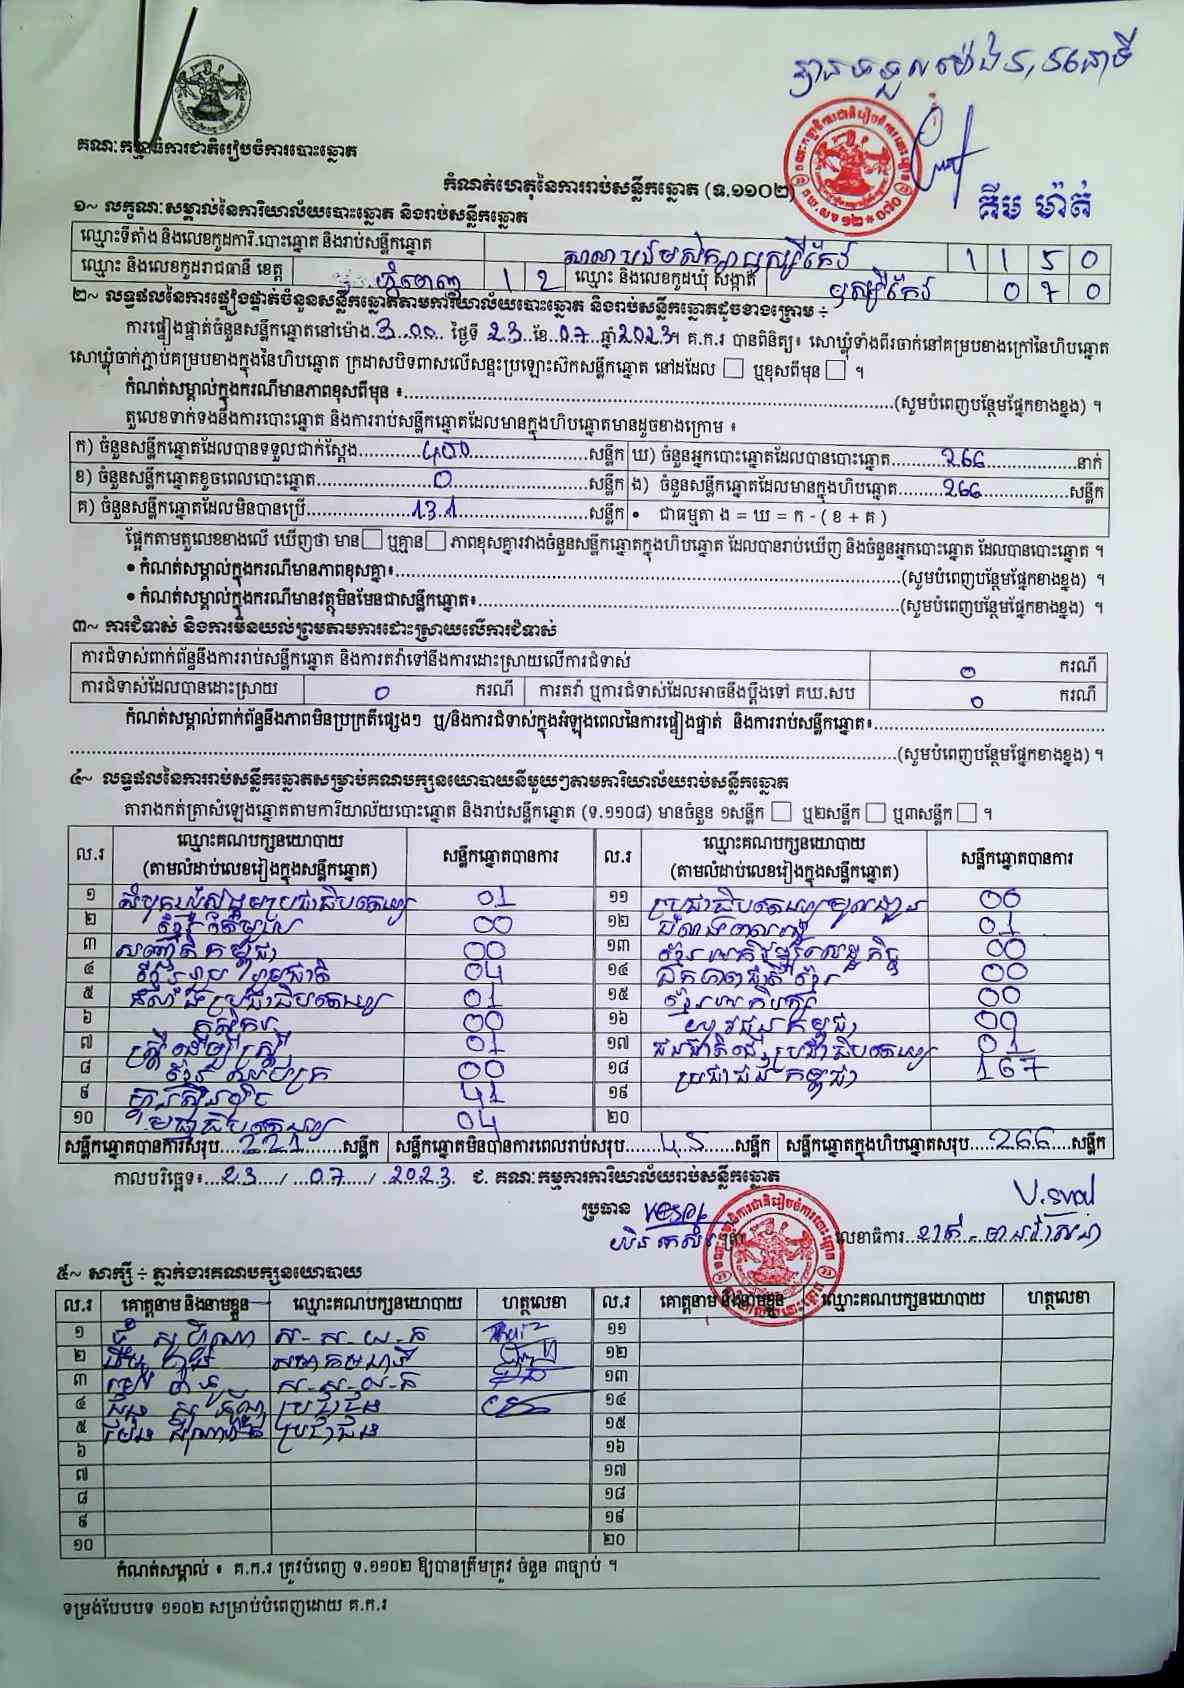 គណៈកម្មាធិការជាតិរៀបចំការបោះឆ្នោត
កំណត់ហេតុនៃការរាប់សន្លឹកឆ្នោត (ទ.១១០២)
គីម ម៉ាត់
១~ លក្ខណៈសម្គាល់នៃការិយាល័យបោះឆ្នោត និងរាប់សន្លឹកឆ្នោត
ឈ្មោះទីតាំង និងលេខកូដការិ.បោះឆ្នោត និងរាប់សន្លឹកឆ្នោត 1 1 5 0
ឈ្មោះ និងលេខកូដរាជធានី ខេត្ត ភ្នំពេញ 1 2 ឈ្មោះ និងលេខកូដឃុំ សង្កាត់ ឫស្សីកែវ 0 7 0
២~ លទ្ធផលនៃការផ្ទៀងផ្ទាត់ចំនួនសន្លឹកឆ្នោតតាមការិយាល័យបោះឆ្នោត និងរាប់សន្លឹកឆ្នោតដូចខាងក្រោម ÷
ការផ្ទៀងផ្ទាត់ចំនួនសន្លឹកឆ្នោតនៅម៉ោង 3:00 ថ្ងៃទី 23 ខែ 07 ឆ្នាំ 2023។ គ.ក.រ បានពិនិត្យ៖ សោឃ្លុំទាំងពីរចាក់នៅគម្របខាងក្រៅនៃហិបឆ្នោត
សោឃ្លុំចាក់ភ្ជាប់គម្របខាងក្នុងនៃហិបឆ្នោត ក្រដាសបិទពាសលើសន្ទះប្រឡោះស៊កសន្លឹកឆ្នោត នៅដដែល ☐ ឬខុសពីមុន ☐ ។
កំណត់សម្គាល់ក្នុងករណីមានភាពខុសពីមុន ៖ (សូមបំពេញបន្ថែមផ្នែកខាងខ្នង) ។
តួលេខទាក់ទងនឹងការបោះឆ្នោត និងការរាប់សន្លឹកឆ្នោតដែលមានក្នុងហិបឆ្នោតមានដូចខាងក្រោម ៖
ក) ចំនួនសន្លឹកឆ្នោតដែលបានទទួលជាក់ស្តែង សន្លឹក ឃ) ចំនួនអ្នកបោះឆ្នោតដែលបានបោះឆ្នោត 266 នាក់
ខ) ចំនួនសន្លឹកឆ្នោតខូចពេលបោះឆ្នោត 0 សន្លឹក ង) ចំនួនសន្លឹកឆ្នោតដែលមានក្នុងហិបឆ្នោត 266 សន្លឹក
គ) ចំនួនសន្លឹកឆ្នោតដែលមិនបានប្រើ 131 សន្លឹក • ជាធម្មតា ង = ឃ = ក - ( ខ + គ )
ផ្អែកតាមតួលេខខាងលើ ឃើញថា មាន ☐ ឬគ្មាន ☐ ភាពខុសគ្នារវាងចំនួនសន្លឹកឆ្នោតក្នុងហិបឆ្នោត ដែលបានរាប់ឃើញ និងចំនួនអ្នកបោះឆ្នោត ដែលបានបោះឆ្នោត ។
• កំណត់សម្គាល់ក្នុងករណីមានភាពខុសគ្នា៖ (សូមបំពេញបន្ថែមផ្នែកខាងខ្នង) ។
• កំណត់សម្គាល់ក្នុងករណីមានវត្ថុមិនមែនជាសន្លឹកឆ្នោត៖ (សូមបំពេញបន្ថែមផ្នែកខាងខ្នង) ។
៣~ ការជំទាស់ និងការមិនយល់ព្រមតាមការដោះស្រាយលើការជំទាស់
ការជំទាស់ពាក់ព័ន្ធនឹងការរាប់សន្លឹកឆ្នោត និងការតវ៉ាទៅនឹងការដោះស្រាយលើការជំទាស់ 0 ករណី
ការជំទាស់ដែលបានដោះស្រាយ 0 ករណី ការតវ៉ា ឬការជំទាស់ដែលអាចនឹងប្តឹងទៅ គឃ.សប 0 ករណី
កំណត់សម្គាល់ពាក់ព័ន្ធនឹងភាពមិនប្រក្រតីផ្សេងៗ ឬ/និងការជំទាស់ក្នុងអំឡុងពេលនៃការផ្ទៀងផ្ទាត់ និងការរាប់សន្លឹកឆ្នោត៖
(សូមបំពេញបន្ថែមផ្នែកខាងខ្នង) ។
៤~ លទ្ធផលនៃការរាប់សន្លឹកឆ្នោតសម្រាប់គណបក្សនយោបាយនីមួយៗតាមការិយាល័យរាប់សន្លឹកឆ្នោត
តារាងកត់ត្រាសំឡេងឆ្នោតតាមការិយាល័យបោះឆ្នោត និងរាប់សន្លឹកឆ្នោត (ទ.១១០៨) មានចំនួន ១សន្លឹក ☐ ឬ២សន្លឹក ☐ ឬ៣សន្លឹក ☐ ។
ល.រ ឈ្មោះគណបក្សនយោបាយ (តាមលំដាប់លេខរៀងក្នុងសន្លឹកឆ្នោត) សន្លឹកឆ្នោតបានការ ល.រ ឈ្មោះគណបក្សនយោបាយ (តាមលំដាប់លេខរៀងក្នុងសន្លឹកឆ្នោត) សន្លឹកឆ្នោតបានការ
១ សំបុកឃ្មុំសង្គមប្រជាធិបតេយ្យ 01 ១១
២ 00 ១២ 01
៣ សញ្ជាតិកម្ពុជា 00 ១៣ 00
៤ 04 ១៤ ឯកភាពជាតិខ្មែរ 00
៥ 01 ១៥ 00
៦ កសិករ 00 ១៦ យុវជនកម្ពុជា 00
៧ ស្ត្រីដើម្បីស្ត្រី 01 ១៧ 01
៨ 00 ១៨ ប្រជាជនកម្ពុជា 167
៩ ហ្វ៊ុនស៊ិនប៉ិច 41 ១៩
១០ 04 ២០
សន្លឹកឆ្នោតបានការសរុប 221 សន្លឹក សន្លឹកឆ្នោតមិនបានការពេលរាប់សរុប 45 សន្លឹក សន្លឹកឆ្នោតក្នុងហិបឆ្នោតសរុប 266 សន្លឹក
កាលបរិច្ឆេទ៖ 23 / 07 / 2023 ជ. គណៈកម្មការការិយាល័យរាប់សន្លឹកឆ្នោត
ប្រធាន
លេខាធិការ
៥~ សាក្សី ÷ ភ្នាក់ងារគណបក្សនយោបាយ
ល.រ គោត្តនាម និងនាមខ្លួន ឈ្មោះគណបក្សនយោបាយ ហត្ថលេខា ល.រ គោត្តនាម និងនាមខ្លួន ឈ្មោះគណបក្សនយោបាយ ហត្ថលេខា
១ ១១
២ ១២
៣ ១៣
៤ ប្រជាជន ១៤
៥ ប្រជាជន ១៥
៦ ១៦
៧ ១៧
៨ ១៨
៩ ១៩
១០ ២០
កំណត់សម្គាល់ ៖ គ.ក.រ ត្រូវបំពេញ ទ.១១០២ ឱ្យបានត្រឹមត្រូវ ចំនួន ៣ច្បាប់ ។
ទម្រង់បែបបទ ១១០២ សម្រាប់បំពេញដោយ គ.ក.រ